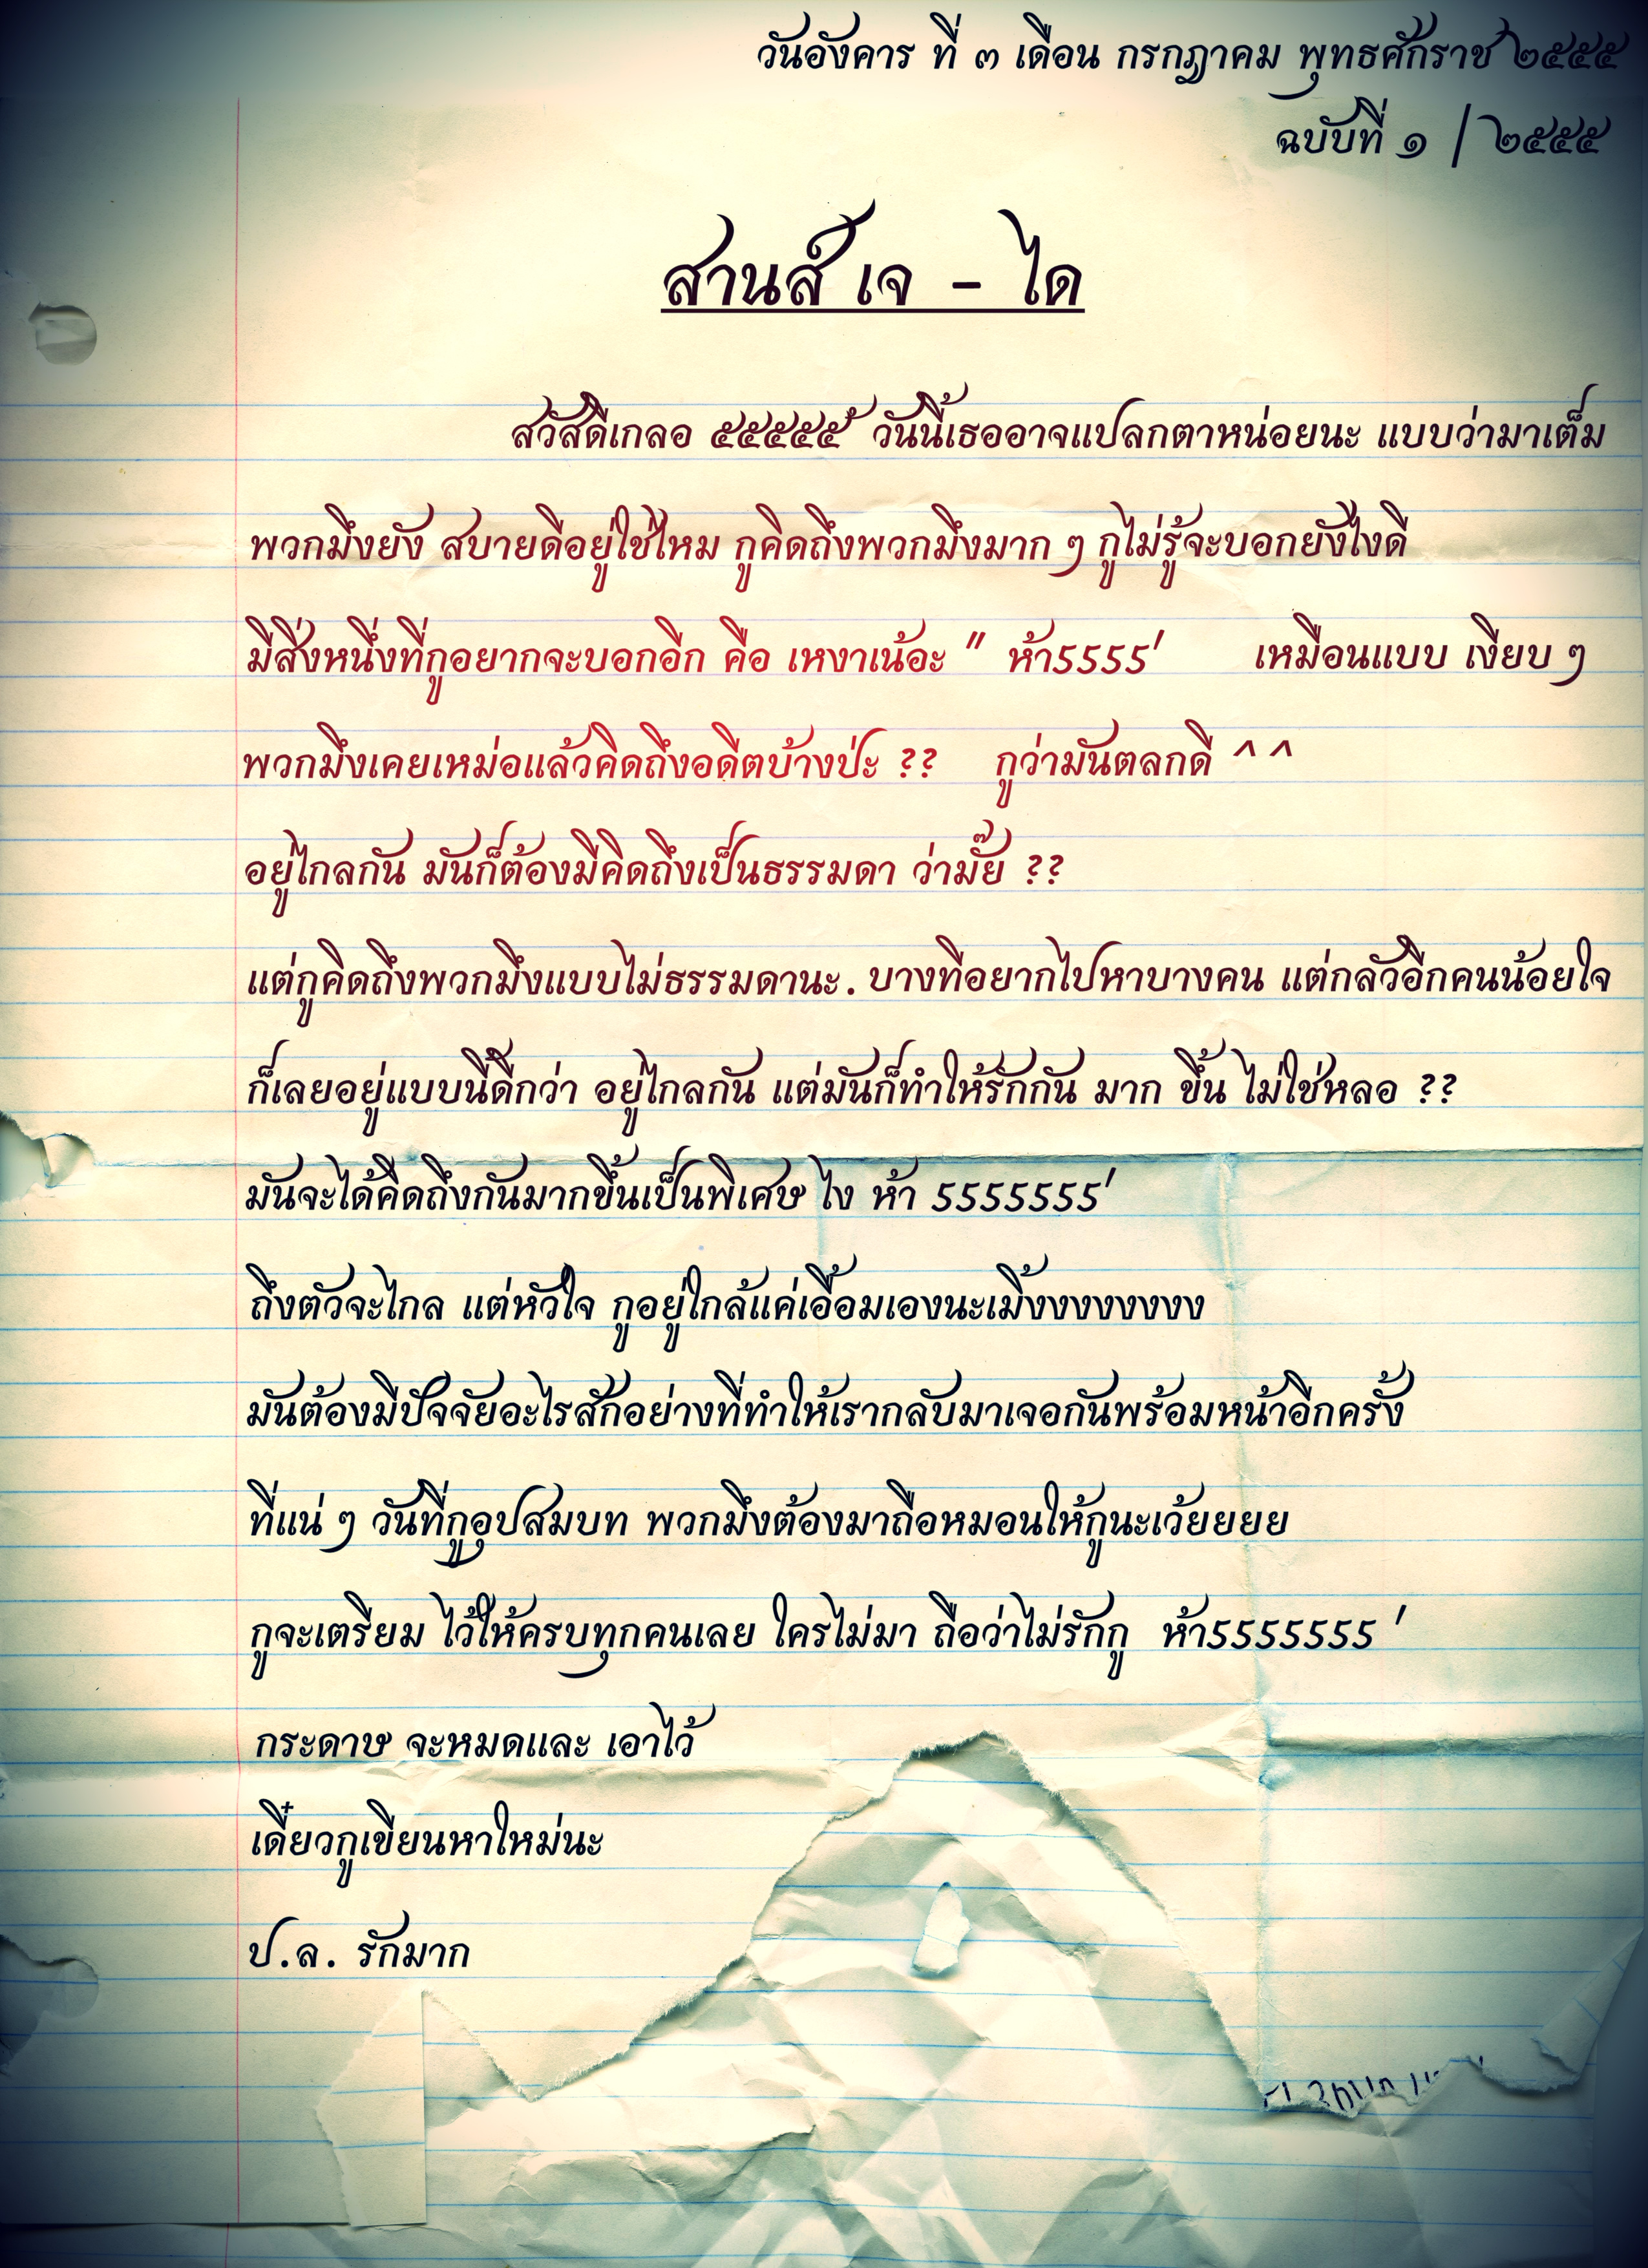 วันอังคาร ที่ ๓ เดือน กรกฎาคม พุทธศักราช ๒๕๕๕
ฉบับที่ ๑ / ๒๕๕๕
สานส์ เจ - ได
สวัสดีเกลอ ๕๕๕๕๕' วันนี้เธออาจแปลกตาหน่อยนะ แบบว่ามาเต็ม
พวกมึงยัง สบายดีอยู่ใช่ไหม กูคิดถึงพวกมึงมาก ๆ กูไม่รู้จะบอกยังไงดี
มีสิ่งหนึ่งที่กูอยากจะบอกอีก คือ เหงาเน้อะ " ห้า5555' เหมือนแบบ เงียบ ๆ
พวกมึงเคยเหม่อแล้วคิดถึงอดีตบ้างป่ะ ?? กูว่ามันตลกดี ^ ^
อยู่ไกลกัน มันก็ต้องมีคิดถึงเป็นธรรมดา ว่ามั๊ย ??
แต่กูคิดถึงพวกมึงแบบไม่ธรรมดานะ. บางทีอยากไปหาบางคน แต่กลัวอีกคนน้อยใจ
ก็เลยอยู่แบบนี้ดีกว่า อยู่ไกลกัน แต่มันก็ทำให้รักกัน มาก ขึ้น ไม่ใช่หลอ ??
มันจะได้คิดถึงกันมากขึ้นเป็นพิเศษ ไง ห้า 5555555'
ถึงตัวจะไกล แต่หัวใจ กูอยู่ใกล้แค่เอื้อมเองนะเมิ้งงงงงงงง
มันต้องมีปัจจัยอะไรสักอย่างที่ทำให้เรากลับมาเจอกันพร้อมหน้าอีกครั้ง
ที่แน่ ๆ วันที่กูอุปสมบท พวกมึงต้องมาถือหมอนให้กูนะเว้ยยยย
กูจะเตรียม ไว้ให้ครบทุกคนเลย ใครไม่มา ถือว่าไม่รักกู ห้า5555555 '
กระดาษ จะหมดและ เอาไว้
เดี๋ยวกูเขียนหาใหม่นะ
ป.ล. รักมาก